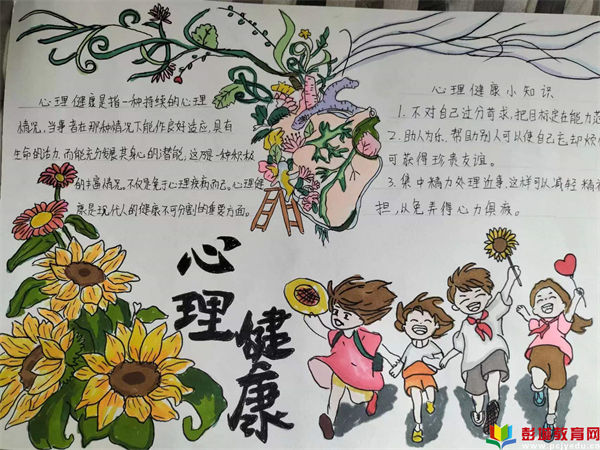 心理健康是指一种持续的心理
情况,当事者在那种情况下能作良好适应,具有
生命的活力,而能充分发展其身心的潜能,这乃是一种积极
的丰富情况。不仅是免于心理疾病而已。心理健
康是现代人的健康不可分割的重要方面。
心理健康小知识
1. 不对自己过分苛求,把目标定在能力范
2. 助人为乐,帮助别人可以使自己忘却烦
可获得珍贵友谊。
3. 集中精力处理近事,这样可以减轻精神
担,从免弄得心力俱疲。
心理
健康
彭媒教育网
www.pcjyedu.cn